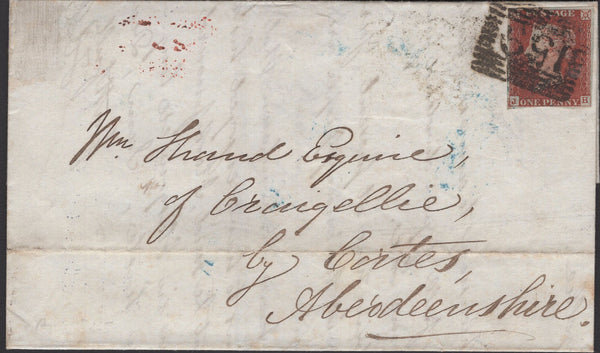 POSTAGE
J H
ONE PENNY
Wm Shand Esquire,
of Craigellie,
by Cortes,
Aberdeenshire.